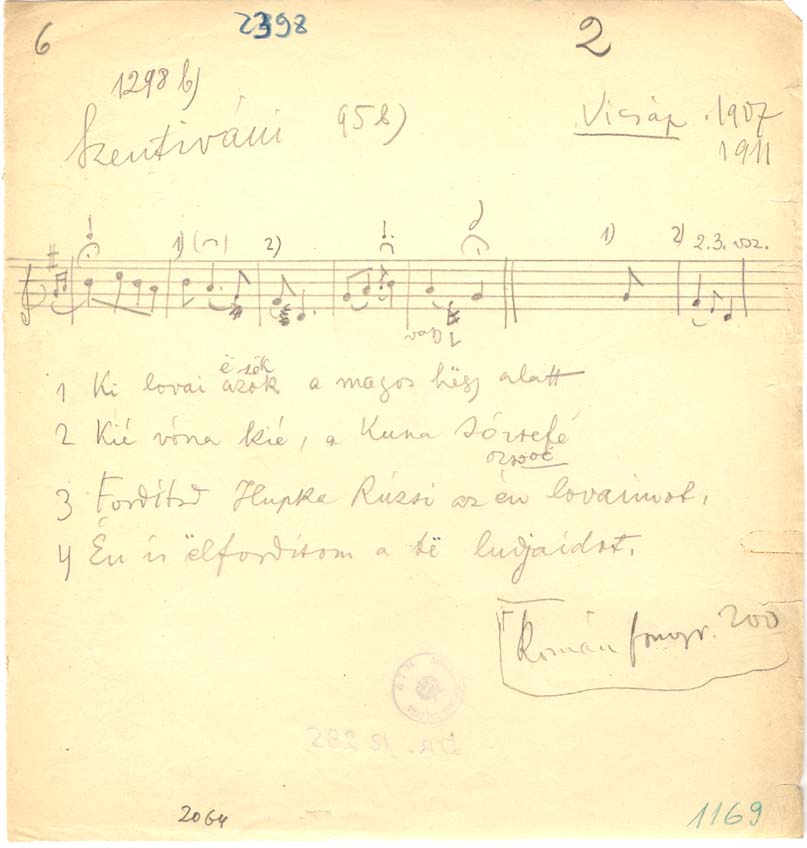 6 2398 2
1298 b)
Szentiváni 95 b) Vicsáp 1907
1911
1) 2) 1) 2) 2.3. vsz.
vagy
ë sëk
1 Ki lovai azok a magos hëgy alatt
2 Kié vóna kié, a Kuna Józsefé
3 Fordítsd Hupka Rúzsi az én lovaimot,
4 Én is ëlfordítom a të ludjaidot.
Román fonogr. 200
2064 1169